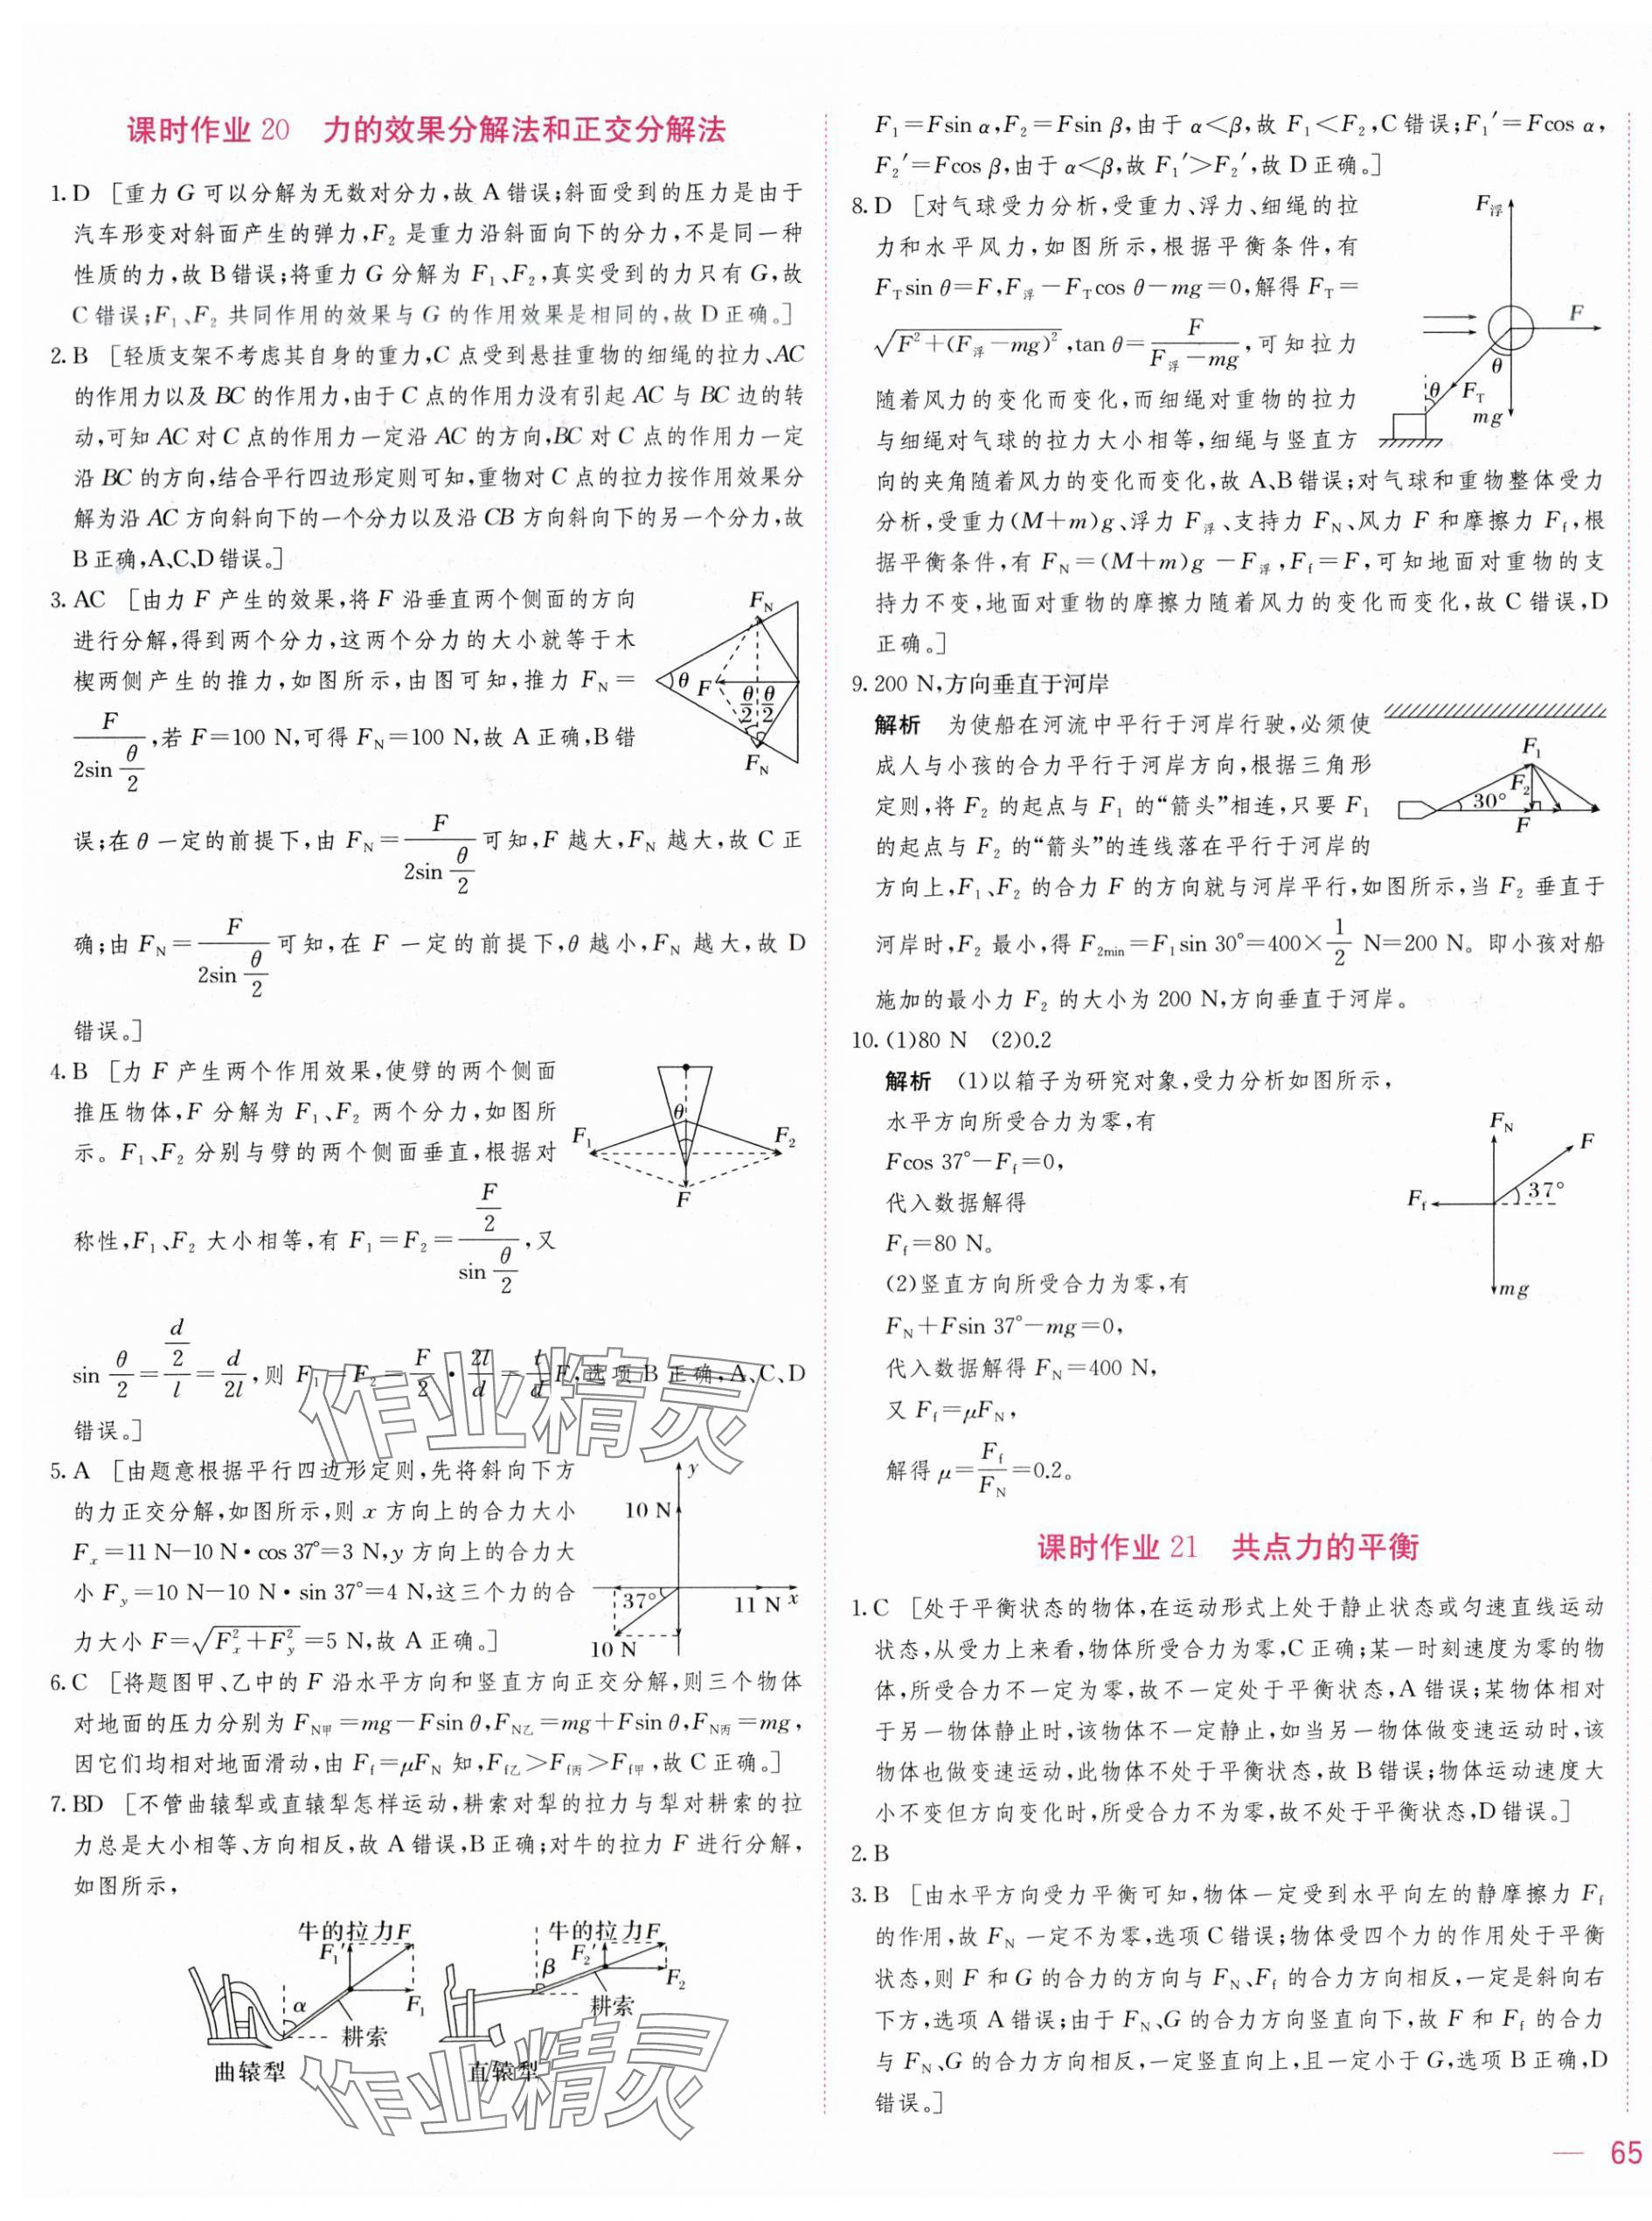 课时作业 20　力的效果分解法和正交分解法
1. D　[重力 G 可以分解为无数对分力,故 A 错误;斜面受到的压力是由于
汽车形变对斜面产生的弹力,F₂ 是重力沿斜面向下的分力,不是同一种
性质的力,故 B错误;将重力 G 分解为 F₁、F₂,真实受到的力只有 G,故
C 错误;F₁、F₂ 共同作用的效果与 G 的作用效果是相同的,故 D 正确。]
2. B　[轻质支架不考虑其自身的重力,C 点受到悬挂重物的细绳的拉力、AC
的作用力以及 BC 的作用力,由于 C 点的作用力没有引起 AC 与 BC 边的转
动,可知 AC 对 C 点的作用力一定沿 AC 的方向,BC 对 C 点的作用力一定
沿 BC 的方向,结合平行四边形定则可知,重物对 C 点的拉力按作用效果分
解为沿 AC 方向斜向下的一个分力以及沿 CB 方向斜向下的另一个分力,故
B 正确,A、C、D 错误。]
3. AC　[由力 F 产生的效果,将 F 沿垂直两个侧面的方向
进行分解,得到两个分力,这两个分力的大小就等于木
楔两侧产生的推力,如图所示,由图可知,推力 F_N=
F/(2sin θ/2),若 F=100 N,可得 F_N=100 N,故 A 正确,B 错
误;在 θ 一定的前提下,由 F_N=F/(2sin θ/2)可知,F 越大,F_N 越大,故 C 正
确;由 F_N=F/(2sin θ/2)可知,在 F 一定的前提下,θ 越小,F_N 越大,故 D
错误。]
F_N
θ F θ/2 θ/2
F_N
4. B　[力 F 产生两个作用效果,使劈的两个侧面
推压物体,F 分解为 F₁、F₂ 两个分力,如图所
示。F₁、F₂ 分别与劈的两个侧面垂直,根据对
称性,F₁、F₂ 大小相等,有 F₁=F₂=(F/2)/(sin θ/2),又
sin θ/2=(d/2)/l=d/2l,则 F₁=F₂=F/2·2l/d=l/d F,选项 B 正确,A、C、D
错误。]
θ
F₁ F₂
F
5. A　[由题意根据平行四边形定则,先将斜向下方
的力正交分解,如图所示,则 x 方向上的合力大小
Fₓ=11 N−10 N·cos 37°=3 N,y 方向上的合力大
小 F_y=10 N−10 N·sin 37°=4 N,这三个力的合
力大小 F=√(Fₓ²+F_y²)=5 N,故 A 正确。]
y
10 N
37°
11 N x
10 N
6. C　[将题图甲、乙中的 F 沿水平方向和竖直方向正交分解,则三个物体
对地面的压力分别为 F_N甲=mg−Fsin θ,F_N乙=mg+Fsin θ,F_N丙=mg,
因它们均相对地面滑动,由 F_f=μF_N 知,F_f乙>F_f丙>F_f甲,故 C 正确。]
7. BD　[不管曲辕犁或直辕犁怎样运动,耕索对犁的拉力与犁对耕索的拉
力总是大小相等、方向相反,故 A 错误,B 正确;对牛的拉力 F 进行分解,
如图所示,
牛的拉力F
F₁′
α F₁
耕索
曲辕犁
牛的拉力F
F₂′
β F₂
耕索
直辕犁
F₁=Fsin α,F₂=Fsin β,由于 α<β,故 F₁<F₂,C 错误;F₁′=Fcos α,
F₂′=Fcos β,由于 α<β,故 F₁′>F₂′,故 D 正确。]
8. D　[对气球受力分析,受重力、浮力、细绳的拉
力和水平风力,如图所示,根据平衡条件,有
F_Tsin θ=F,F浮−F_Tcos θ−mg=0,解得 F_T=
√(F²+(F浮−mg)²),tan θ=F/(F浮−mg),可知拉力
随着风力的变化而变化,而细绳对重物的拉力
与细绳对气球的拉力大小相等,细绳与竖直方
向的夹角随着风力的变化而变化,故 A、B 错误;对气球和重物整体受力
分析,受重力(M+m)g、浮力 F浮、支持力 F_N、风力 F 和摩擦力 F_f,根
据平衡条件,有 F_N=(M+m)g−F浮,F_f=F,可知地面对重物的支
持力不变,地面对重物的摩擦力随着风力的变化而变化,故 C 错误,D
正确。]
F浮
F
θ
θ F_T
mg
9. 200 N,方向垂直于河岸
解析　为使船在河流中平行于河岸行驶,必须使
成人与小孩的合力平行于河岸方向,根据三角形
定则,将 F₂ 的起点与 F₁ 的“箭头”相连,只要 F₁
的起点与 F₂ 的“箭头”的连线落在平行于河岸的
方向上,F₁、F₂ 的合力 F 的方向就与河岸平行,如图所示,当 F₂ 垂直于
河岸时,F₂ 最小,得 F₂min=F₁sin 30°=400×1/2 N=200 N。即小孩对船
施加的最小力 F₂ 的大小为 200 N,方向垂直于河岸。
F₁
F₂
30°
F
10. (1)80 N　(2)0.2
解析　(1)以箱子为研究对象,受力分析如图所示,
水平方向所受合力为零,有
Fcos 37°−F_f=0,
代入数据解得
F_f=80 N。
(2)竖直方向所受合力为零,有
F_N+Fsin 37°−mg=0,
代入数据解得 F_N=400 N,
又 F_f=μF_N,
解得 μ=F_f/F_N=0.2。
F_N
F
F_f 37°
mg
课时作业 21　共点力的平衡
1. C　[处于平衡状态的物体,在运动形式上处于静止状态或匀速直线运动
状态,从受力上来看,物体所受合力为零,C 正确;某一时刻速度为零的物
体,所受合力不一定为零,故不一定处于平衡状态,A 错误;某物体相对
于另一物体静止时,该物体不一定静止,如当另一物体做变速运动时,该
物体也做变速运动,此物体不处于平衡状态,故 B 错误;物体运动速度大
小不变但方向变化时,所受合力不为零,故不处于平衡状态,D 错误。]
2. B
3. B　[由水平方向受力平衡可知,物体一定受到水平向左的静摩擦力 F_f
的作用,故 F_N 一定不为零,选项 C 错误;物体受四个力的作用处于平衡
状态,则 F 和 G 的合力的方向与 F_N、F_f 的合力方向相反,一定是斜向右
下方,选项 A 错误;由于 F_N、G 的合力方向竖直向下,故 F 和 F_f 的合力
与 F_N、G 的合力方向相反,一定竖直向上,且一定小于 G,选项 B 正确,D
错误。]
— 65
作业精灵
作业精灵